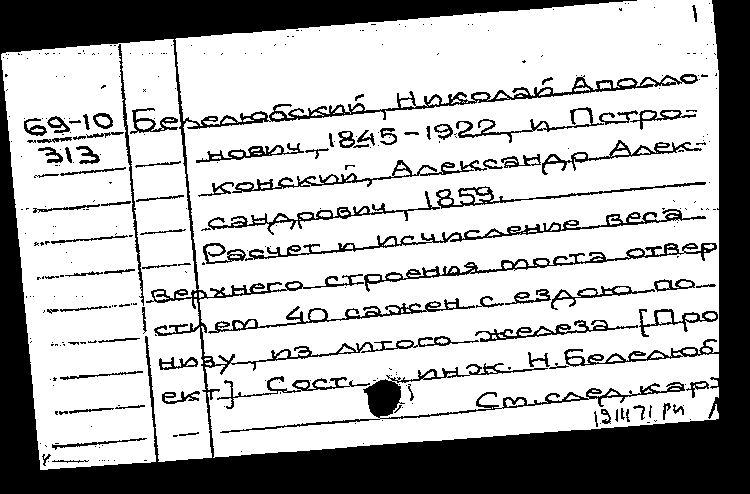 1
69-10 Белелюбский, Николай Аполло-
313 нович, 1845-1922, и Пстро-
конский, Александр Алек-
сандрович, 1859.
Расчет и исчисление веса
верхнего строения моста отвер
стием 40 сажен с ездою по
низу, из литого железа [Про
ект]. Сост. инж. Н. Белелюб
См. след. кар